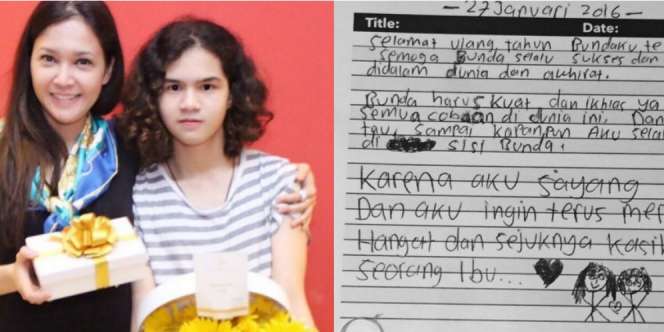 - 27 Januari 2016 -
Title: Date:
Selamat ulang tahun Bundaku, te
Semoga Bunda selalu sukses dan
didalam dunia dan akhirat.
Bunda harus kuat dan ikhlas ya
semua cobaan di dunia ini. Dan
tau, sampai kapanpun Aku sela
di sisi Bunda.
Karena aku sayang
Dan aku ingin terus mer
Hangat dan sejuknya kasih
Seorang Ibu...